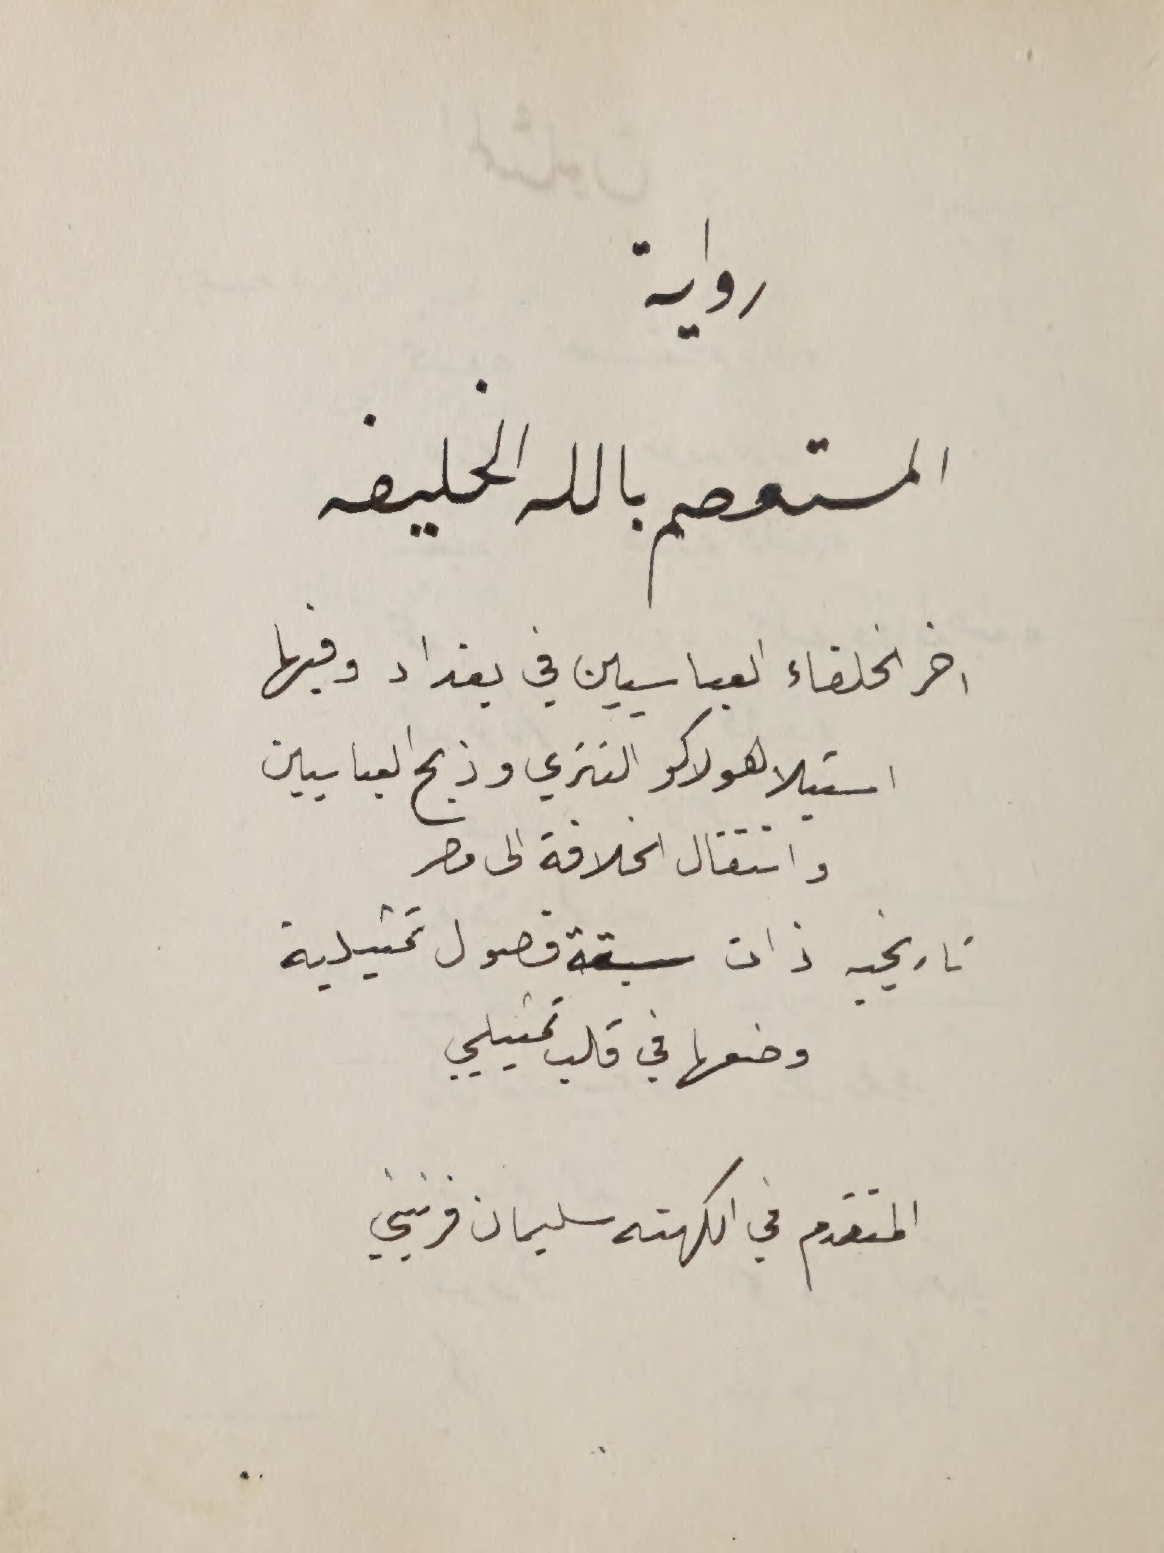 رواية
المستعصم بالله الخليفه
اخر الخلفاء العباسيين في بغداد وفيها
استيلا هولاكو التتري وذبح العباسيين
وانتقال الخلافة الى مصر
تاريخيه ذات سبعة فصول تمثيلية
وضعها في قالب تمثيلي
المتقدم في الكهنه سليمان فرنيني